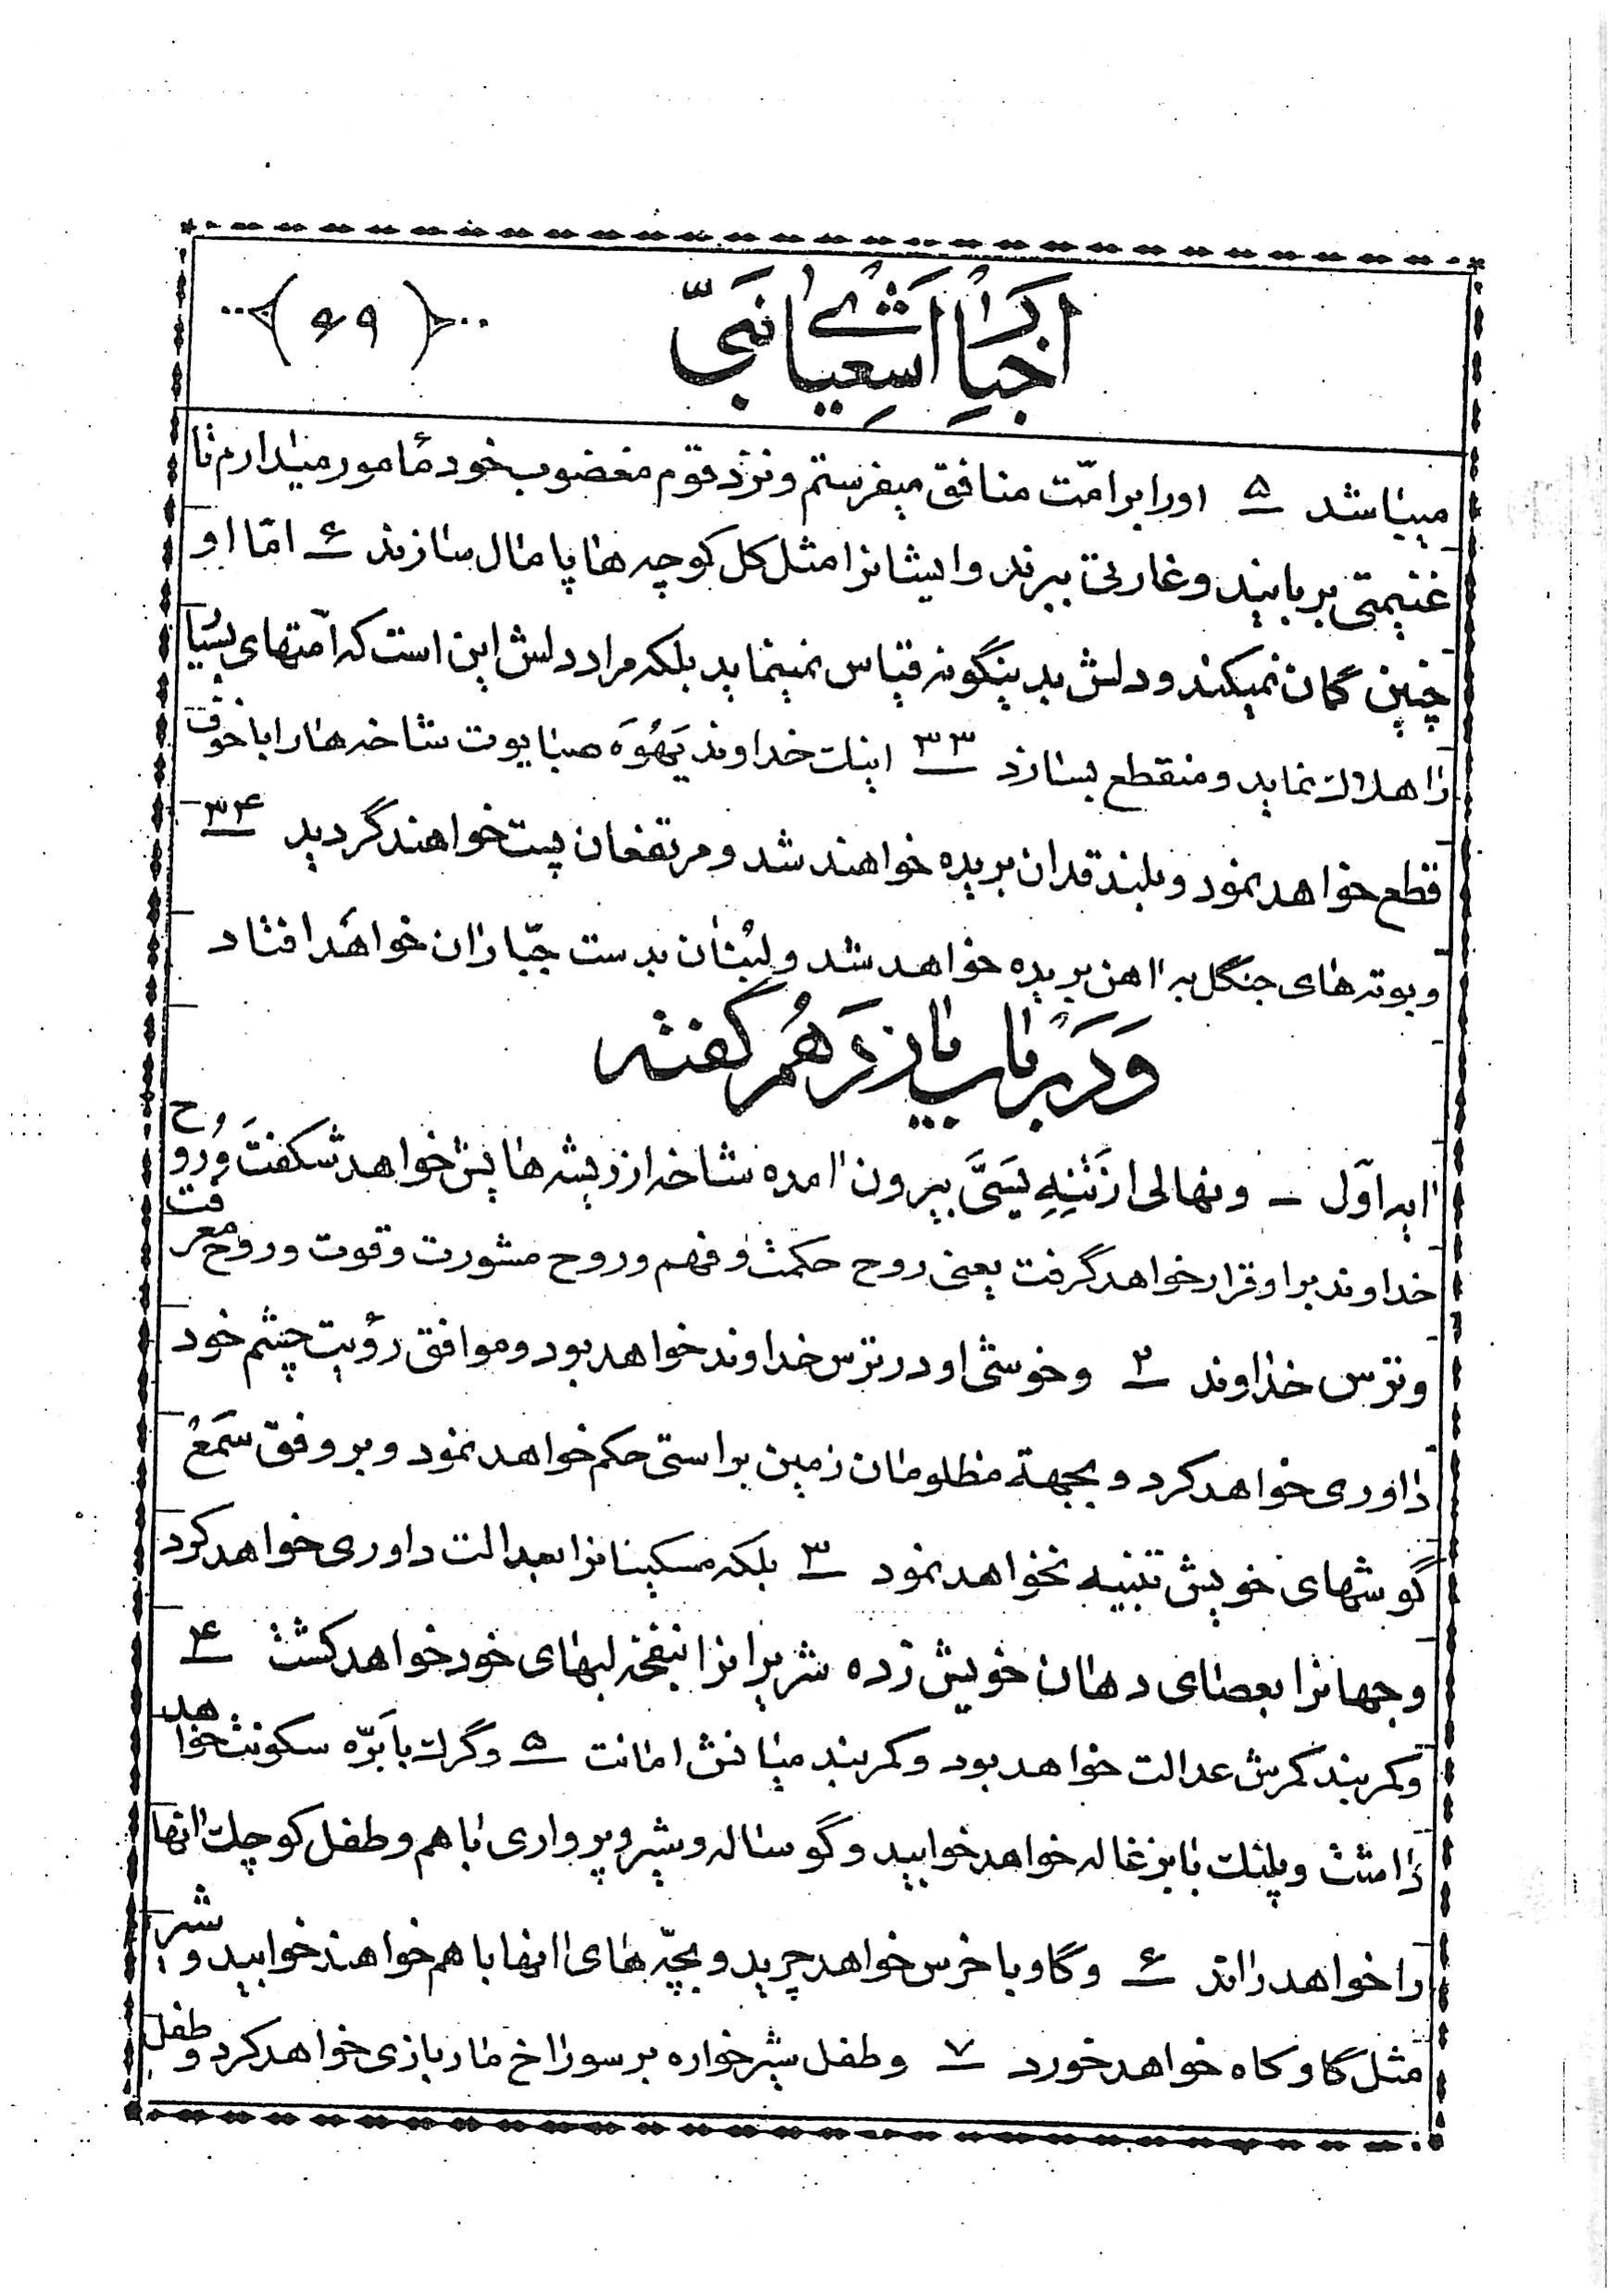 اخبار اشعیا نبی
(۶۹)
میباشد ۵ اورا بر امّت منافق میفرستم و نزد قوم مغضوب خود مأمور میدارم تا
غنیمتی بربایند و غارتی ببرند و ایشانرا مثل گل کوچه‌ها پامال سازند ۶ امّا او
چنین گمان نمیکند و دلش بدینگونه قیاس نمینماید بلکه مراد دلش این است که امّتهای بسیار
را هلاک نماید و منقطع بسازد ۳۳ اینک خداوند یَهُوَه صبایوت شاخه‌هارا با خوف
قطع خواهد نمود و بلند قدان بریده خواهند شد و مرتفعان پست خواهند گردید ۳۴
و بوته‌های جنگل به آهن بریده خواهد شد و لُبنان بدست جبّاران خواهد افتاد
وَدَر باب یازدَهُم گفته
آیه اوّل - و نهالی از تَنِهِ یَسَیَّ بیرون آمده شاخه از ریشه‌هایش خواهد شکفت وَ رُوح
خداوند بر او قرار خواهد گرفت یعنی روح حکمت و فهم و روح مشورت و قوت و روح معرفت
و ترس خداوند ۲ و خوشی او در ترس خداوند خواهد بود و موافق رؤیت چشم خود
داوری خواهد کرد و بجهة مظلومان زمین براستی حکم خواهد نمود و بر وفق سَمْعْ
گوشهای خویش تنبیه نخواهد نمود ۳ بلکه مسکینانرا بعدالت داوری خواهد کرد
و جهانرا بعصای دهان خویش زده شریرانرا بنفخه لبهای خود خواهد کشت ۴
و کمربند کمرش عدالت خواهد بود و کمربند میانش امانت ۵ و گرگ با بَرّه سکونت خواهد
داشت و پلنگ با بزغاله خواهد خوابید و گوساله و شیر و پرواری با هم و طفل کوچک آنها
را خواهد راند ۶ و گاو با خرس خواهد چرید و بچّه‌های آنها با هم خواهند خوابید و شیر
مثل گاو کاه خواهد خورد ۷ و طفل شیرخواره بر سوراخ مار بازی خواهد کرد و طفل